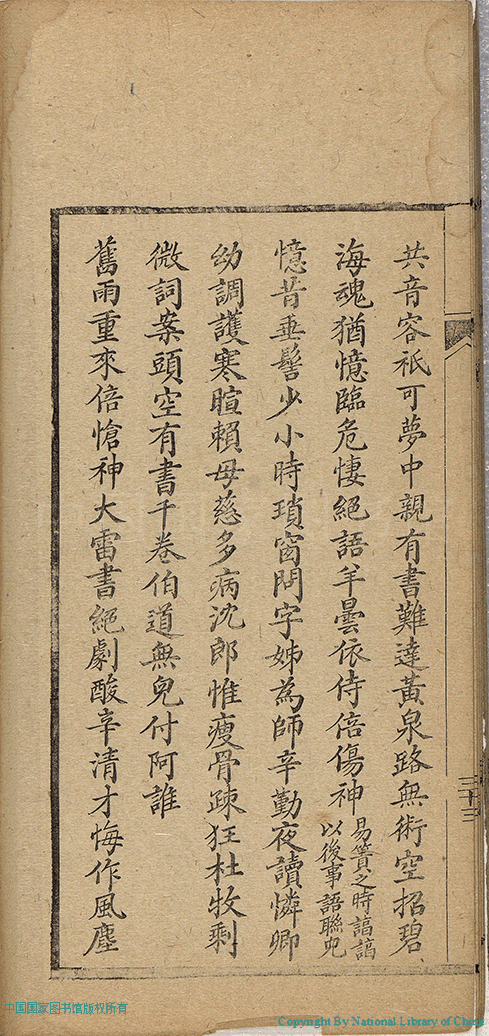 共音容祇可夢中親有書難達黃泉路無術空招碧
海魂猶憶臨危悽絕語羊曇依侍倍傷神易簀之時諄諄以後事語聯皃
憶昔垂髫少小時瑣窗問字姊為師辛勤夜讀憐卿
幼調護寒暄賴母慈多病沈郎惟瘦骨疎狂杜牧剩
微詞案頭空有書千卷伯道無皃付阿誰
舊雨重來倍愴神大雷書絕劇酸辛清才悔作風塵
三十三
中国国家图书馆版权所有
Copyright By National Library of China